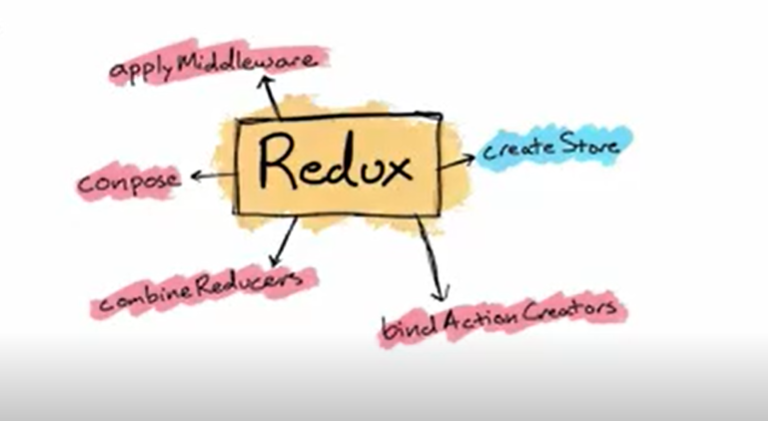 applyMiddleware
Redux
createStore
conpose
combineReducers
bindActionCreators